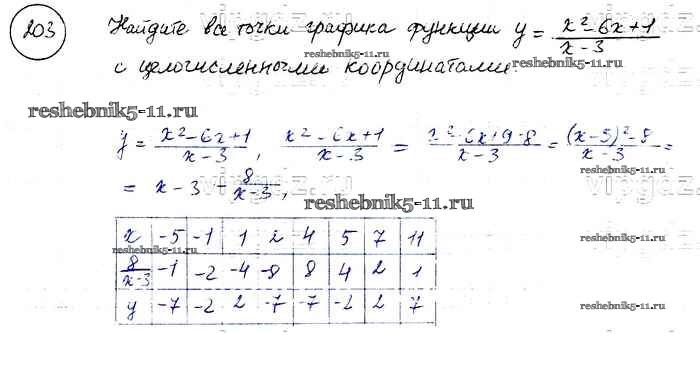 203 Найдите все точки графика функции y = (x² - 6x + 1)/(x - 3)
reshebnik5-11.ru
с целочисленными координатами.
reshebnik5-11.ru
reshebnik5-11.ru
y = (x² - 6x + 1)/(x - 3), (x² - 6x + 1)/(x - 3) = (x² - 6x + 9 - 8)/(x - 3) = ((x - 3)² - 8)/(x - 3) =
= x - 3 - 8/(x - 3),
reshebnik5-11.ru
reshebnik5-11.ru
x -5 -1 1 2 4 5 7 11
reshebnik5-11.ru
8/(x-3) -1 -2 -4 -8 8 4 2 1
y -7 -2 2 7 -7 -2 2 7
reshebnik5-11.ru